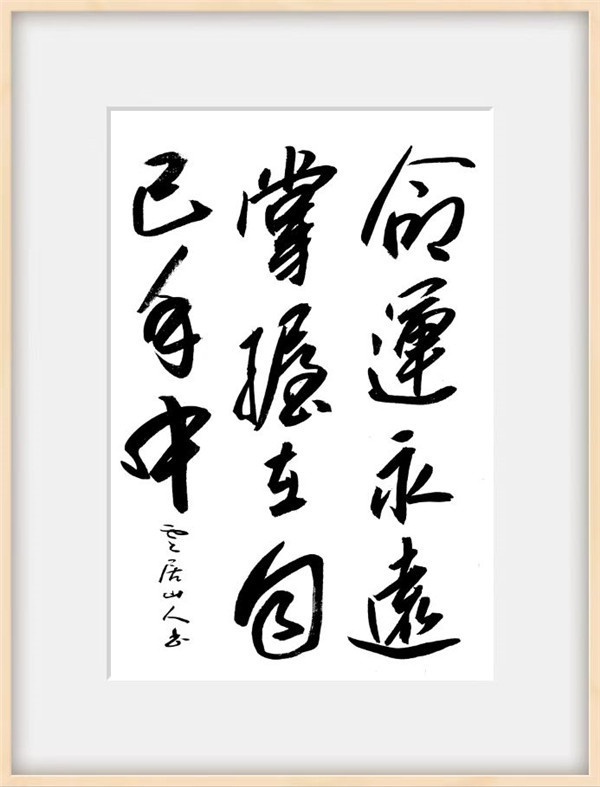 命運永遠
掌握在自
己手中
雲居山人书